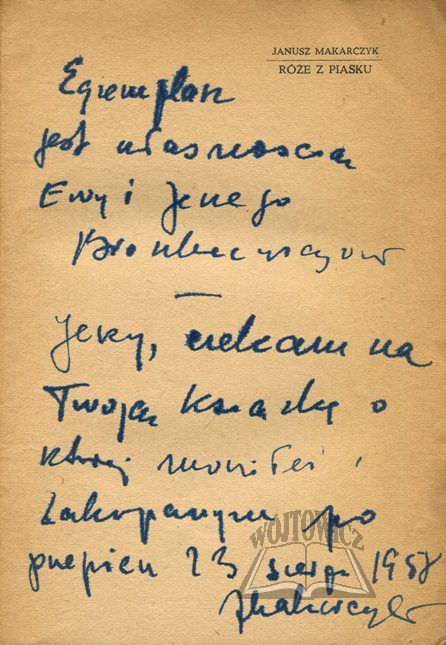 JANUSZ MAKARCZYK
RÓŻE Z PIASKU
Egzemplarz
jest własnością
Ewy i Jerzego
Jerzy, czekam na
Twoją książkę o
której mówiłeś
Zakopanym po
przepiciu 23 sierp. 1958
JMakarczyk
WÓJTOWICZ